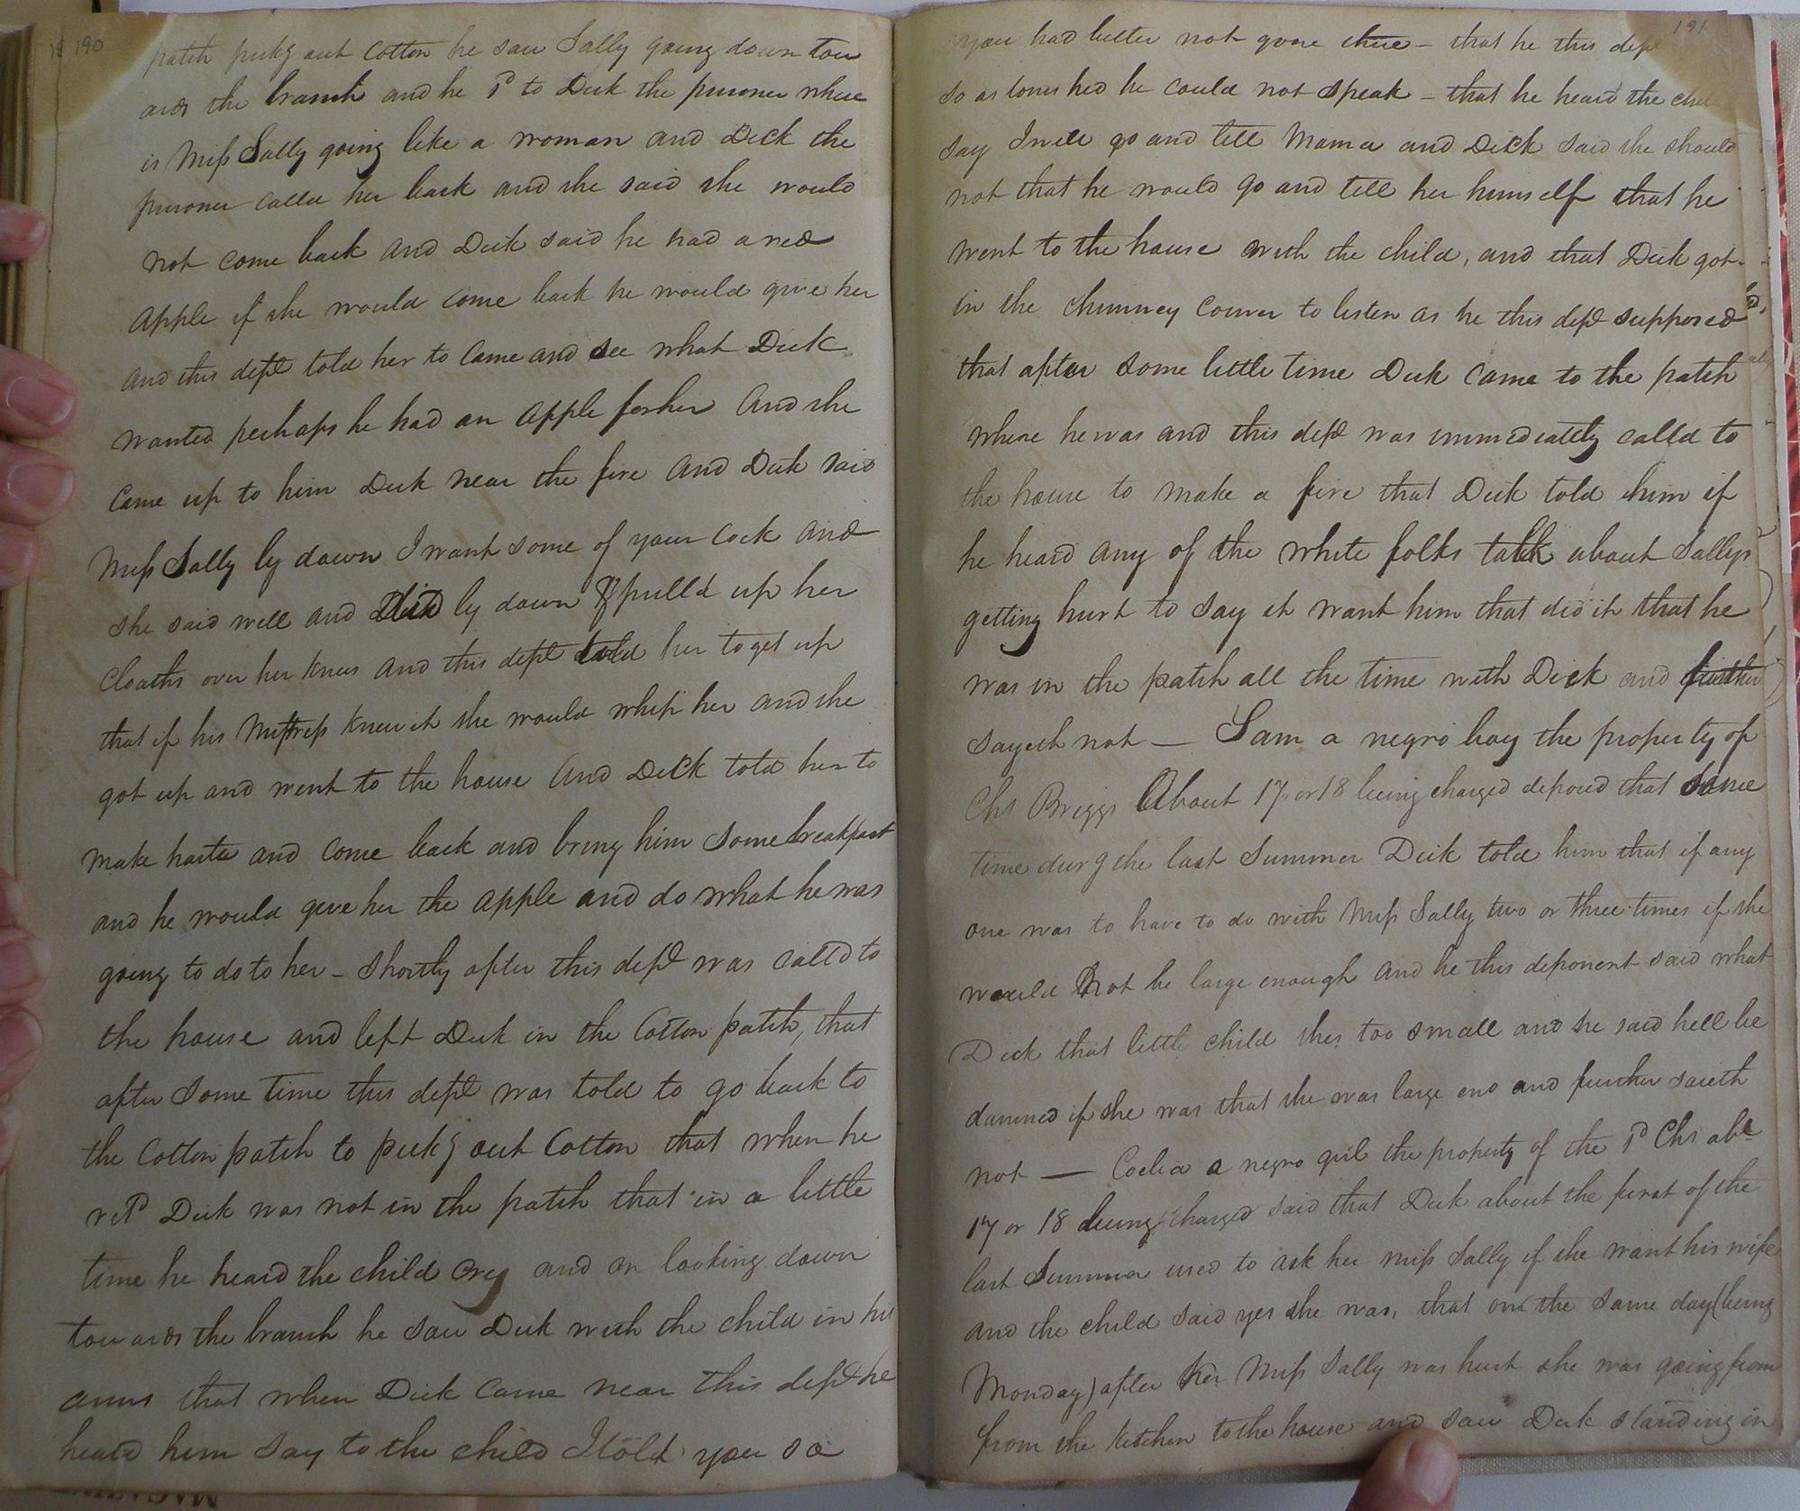 190
patch pickg out Cotton he saw Sally going down tow
ards the branch and he sd to Dick the prisoner where
is Miss Sally going like a woman and Dick the
prisoner calld her back and she said she would
not come back and Dick said he had a red
apple if she would come back he would give her
and this dept told her to come and see what Dick
wanted perhaps he had an apple for her and she
came up to him Dick near the fire and Dick said
Miss Sally ly down I want some of your cock and
she said well and did ly down & pulld up her
cloaths over her knees and this dept told her to get up
that if his Mistress knew it she would whip her and she
got up and went to the house and Dick told her to
make haste and come back and bring him some breakfast
and he would give her the apple and do what he was
going to do to her – Shortly after this dept was calld to
the house and left Dick in the Cotton patch, that
after some time this dept was told to go back to
the Cotton patch to pickg out Cotton that when he
retd Dick was not in the patch that in a little
time he heard the child cry and on looking down
towards the branch he saw Dick with the child in his
arms that when Dick came near this dept he
heard him say to the child I told you so
191
you had better not gone there – that he this dept
so astonished he could not speak – that he heard the
say I will go and tell Mama and Dick said she should
not that he would go and tell her himself that he
went to the house with the child, and that Dick got
in the chimney corner to listen as he this dept supposed
that after some little time Dick came to the patch
where he was and this dept was immediately calld to
the house to make a fire that Dick told him if
he heard any of the white folks talk about Sallys
getting hurt to say it want him that did it that he
was in the patch all the time with Dick and further
sayeth not — Sam a negro boy the property of
Chs Briggs About 17 or 18 being charged deposed that some
time durg the last Summer Dick told him that if any
one was to have to do with Miss Sally two or three times if she
would not be large enough and he this deponent said what
Dick that little child shes too small and he said hell be
damned if she was that she was large eno and further saieth
not — Coelia a negro girl the property of the sd Chs abt
17 or 18 being charged said that Dick about the first of the
last Summer used to ask her Miss Sally if she want his wife
and the child said yes she was, that on the same day (being
Monday) after her Miss Sally was hurt she was going from
from the kitchen to the house and saw Dick standing in